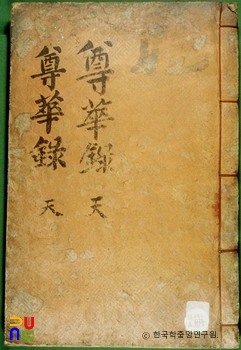 尊華錄 天
尊華錄 天
© 한국학중앙연구원